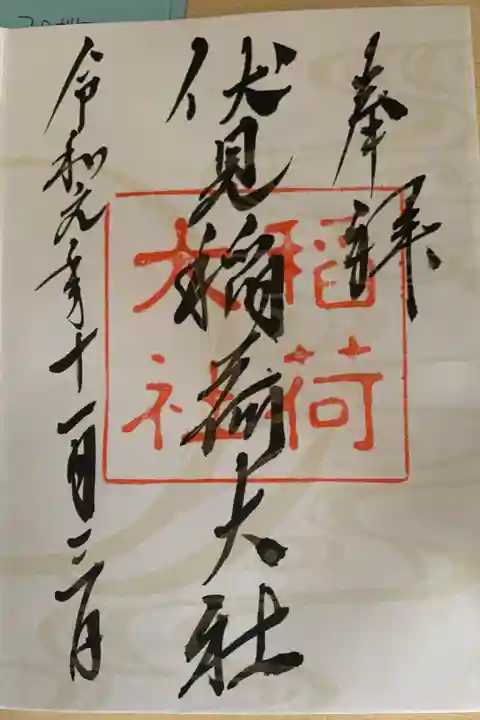 奉拝
伏見稲荷大社
稲荷
大社
令和元年十一月二日